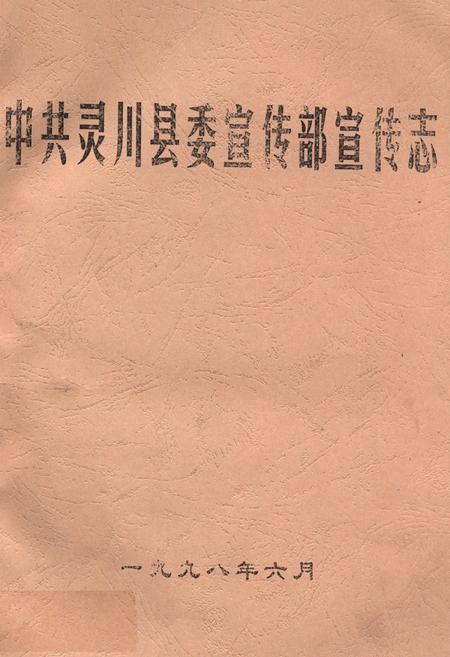 中共灵川县委宣传部宣传志
一九九八年六月